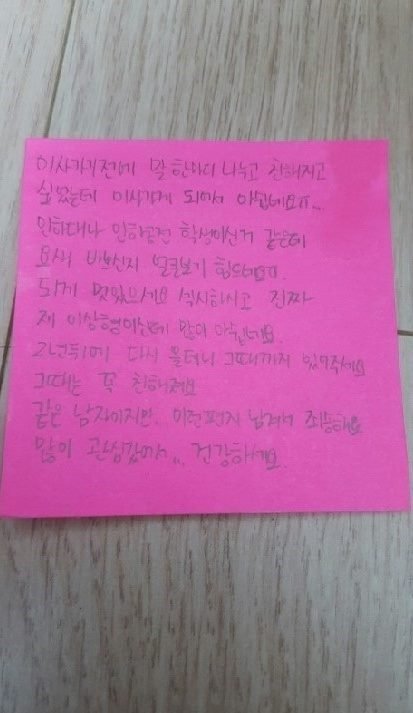 이사가기전에 말 한마디 나누고 친해지고
싶었는데 이사가게 되어서 아쉽네요ㅠ...
인하대나 인하공전 학생이신거 같은데
요새 바쁘신지 얼굴보기 힘드네요ㅠ.
되게 멋있으세요 섹시하시고 진짜
제 이상형이신데 많이 아쉽네요.
2년뒤에 다시 올테니 그때까지 있어주세요
그때는 꼭 친해져요
같은 남자이지만, 이런편지 남겨서 죄송해요
많이 관심갔어서... 건강하세요